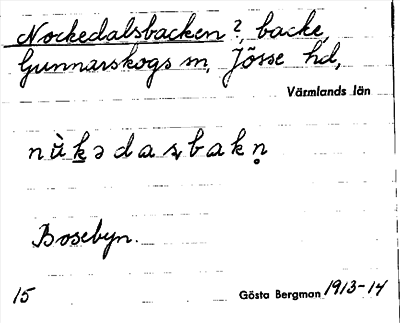 Nockedalsbacken ?, backe,
Gunnarskogs sn, Jösse hd,
Värmlands län
nùk̠ədaꞎbakn̥
Bosebyn.
15 Gösta Bergman 1913-14